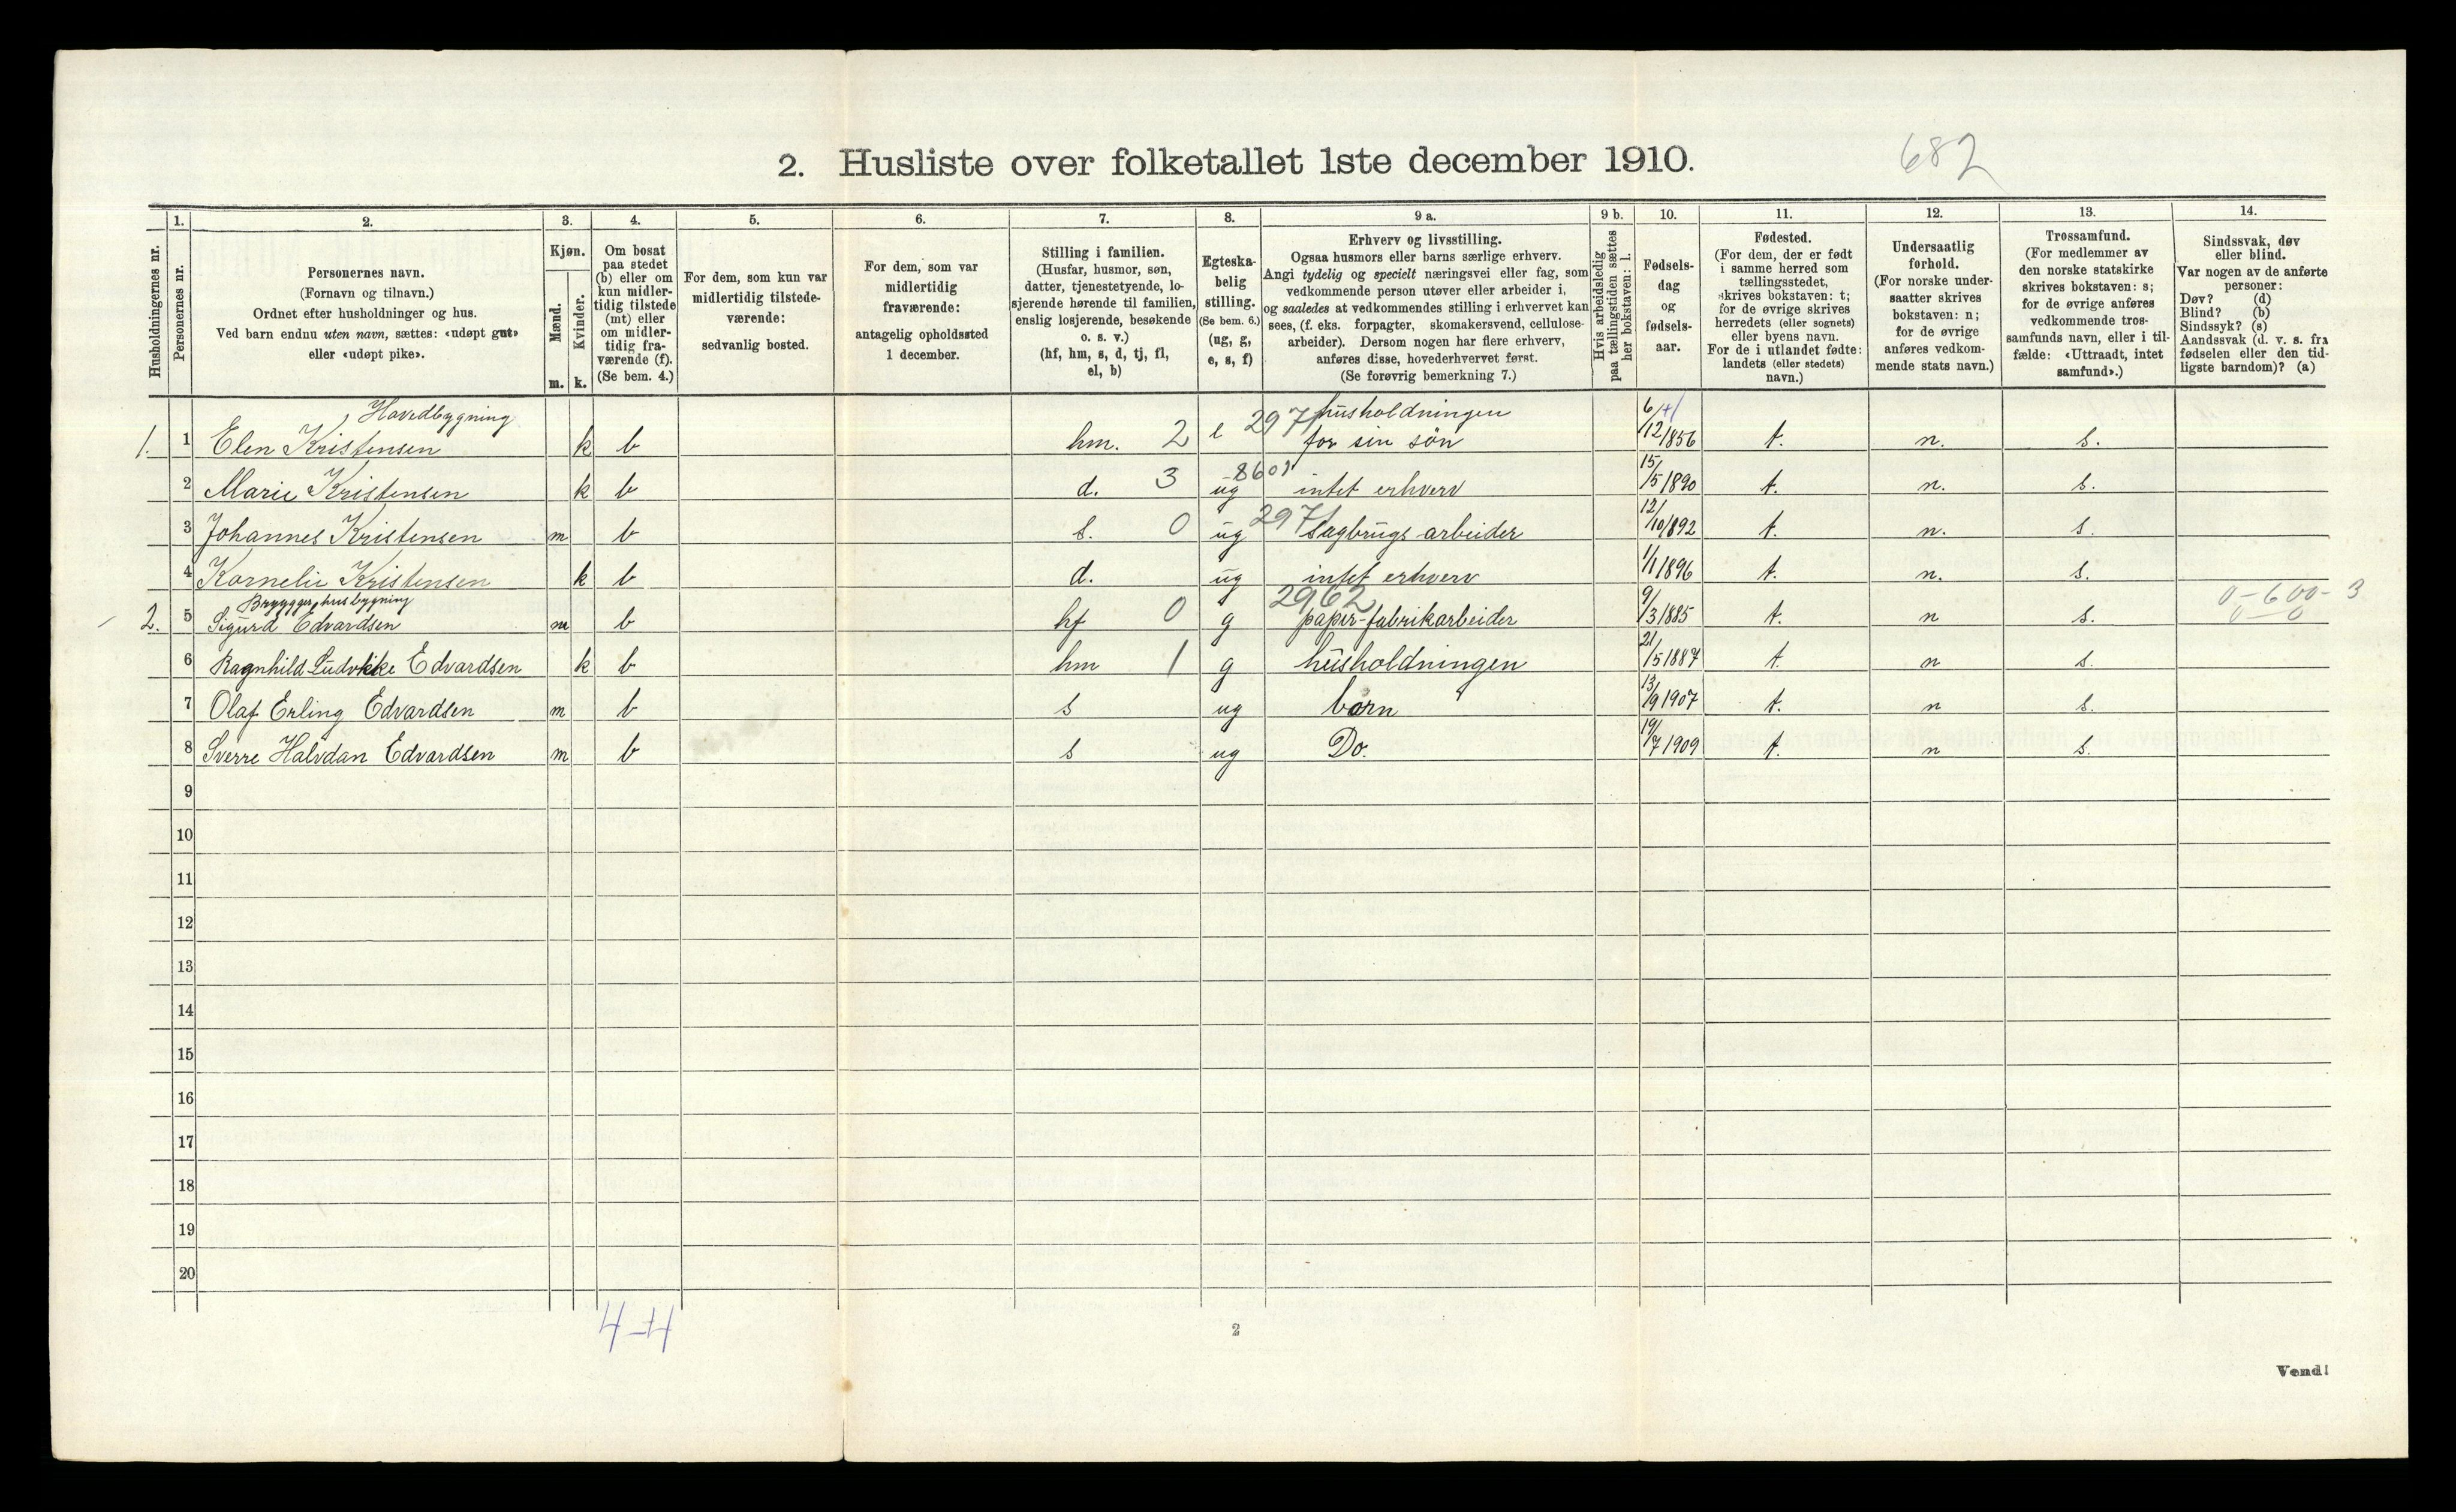 2. Husliste over folketallet 1ste december 1910.
682
Husholdningernes nr.
1.
Personernes nr.
2.
Personernes navn.
(Fornavn og tilnavn.)
Ordnet efter husholdninger og hus.
Ved barn endnu uten navn, sættes: «udøpt gut»
eller «udøpt pike».
3.
Kjøn.
Mænd.
Kvinder.
m.
k.
4.
Om bosat
paa stedet
(b) eller om
kun midler-
tidig tilstede
(mt) eller
om midler-
tidig fra-
værende (f).
(Se bem. 4.)
5.
For dem, som kun var
midlertidig tilstede-
værende:
sedvanlig bosted.
6.
For dem, som var
midlertidig
fraværende:
antagelig opholdssted
1 december.
7.
Stilling i familien.
(Husfar, husmor, søn,
datter, tjenestetyende, lo-
sjerende hørende til familien,
enslig losjerende, besøkende
o. s. v.)
(hf, hm, s, d, tj, fl,
el, b)
8.
Egteska-
belig
stilling.
(Se bem. 6.)
(ug, g,
e, s, f)
9 a.
Erhverv og livsstilling.
Ogsaa husmors eller barns særlige erhverv.
Angi tydelig og specielt næringsvei eller fag, som
vedkommende person utøver eller arbeider i,
og saaledes at vedkommendes stilling i erhvervet kan
sees, (f. eks. forpagter, skomakersvend, cellulose-
arbeider). Dersom nogen har flere erhverv,
anføres disse, hovederhvervet først.
(Se forøvrig bemerkning 7.)
9 b.
Hvis arbeidsledig
paa tællingstiden sættes
her bokstaven: l.
10.
Fødsels-
dag
og
fødsels-
aar.
11.
Fødested.
(For dem, der er født
i samme herred som
tællingsstedet,
skrives bokstaven: t;
for de øvrige skrives
herredets (eller sognets)
eller byens navn.
For de i utlandet fødte:
landets (eller stedets)
navn.)
12.
Undersaatlig
forhold.
(For norske under-
saatter skrives
bokstaven: n;
for de øvrige
anføres vedkom-
mende stats navn.)
13.
Trossamfund.
(For medlemmer av
den norske statskirke
skrives bokstaven: s;
for de øvrige anføres
vedkommende tros-
samfunds navn, eller i til-
fælde: «Uttraadt, intet
samfund».)
14.
Sindssvak, døv
eller blind.
Var nogen av de anførte
personer:
Døv? (d)
Blind? (b)
Sindssyk? (s)
Aandssvak (d. v. s. fra
fødselen eller den tid-
ligste barndom)? (a)
Hovedbygning
1. 1 Elen Kristensen k b hm. 2 e 2971 husholdningen for sin sön 6/12 1856 t. n. s.
2 Marie Kristensen k b d. 3 ug 8601 intet erhverv 15/5 1890 t. n. s.
3 Johannes Kristensen m b s. 0 ug 2971 Sagbrugs arbeider 12/10 1892 t. n. s.
4 Kornelie Kristensen k b d. ug intet erhverv 1/1 1896 t. n. s.
Bryggerhusbygning
2. 5 Sigurd Edvardsen m b hf 0 g 2962 papir-fabrikarbeider 9/3 1885 t. n s. 0-600-3
0-0
6 Ragnhild Ludvikke Edvardsen k b hm 1 g husholdningen 21/5 1887 t. n s.
7 Olaf Erling Edvardsen m b s ug barn 13/9 1907 t. n s.
8 Sverre Halvdan Edvardsen m b s ug Do. 19/7 1909 t. n s.
9
10
11
12
13
14
15
16
17
18
19
20
4-4
2
Vend!